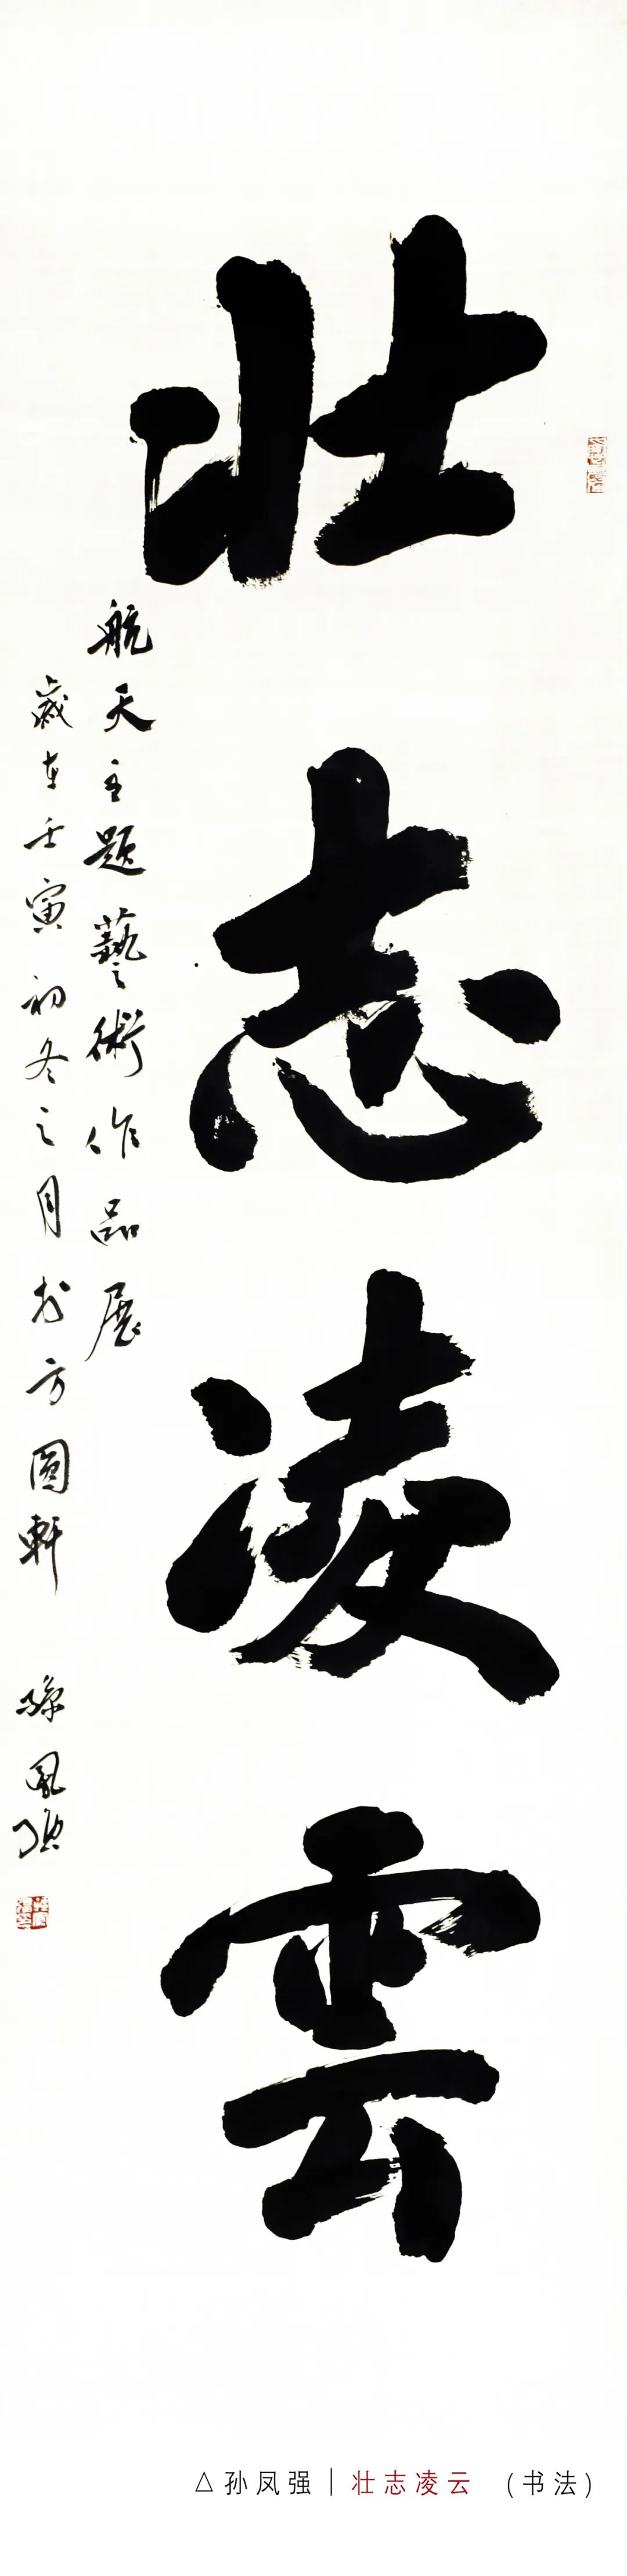 壮志凌雲
航天主题藝術作品展
歲在壬寅初冬之月於方圓軒
孫鳳强
△孙凤强|壮志凌云（书法）